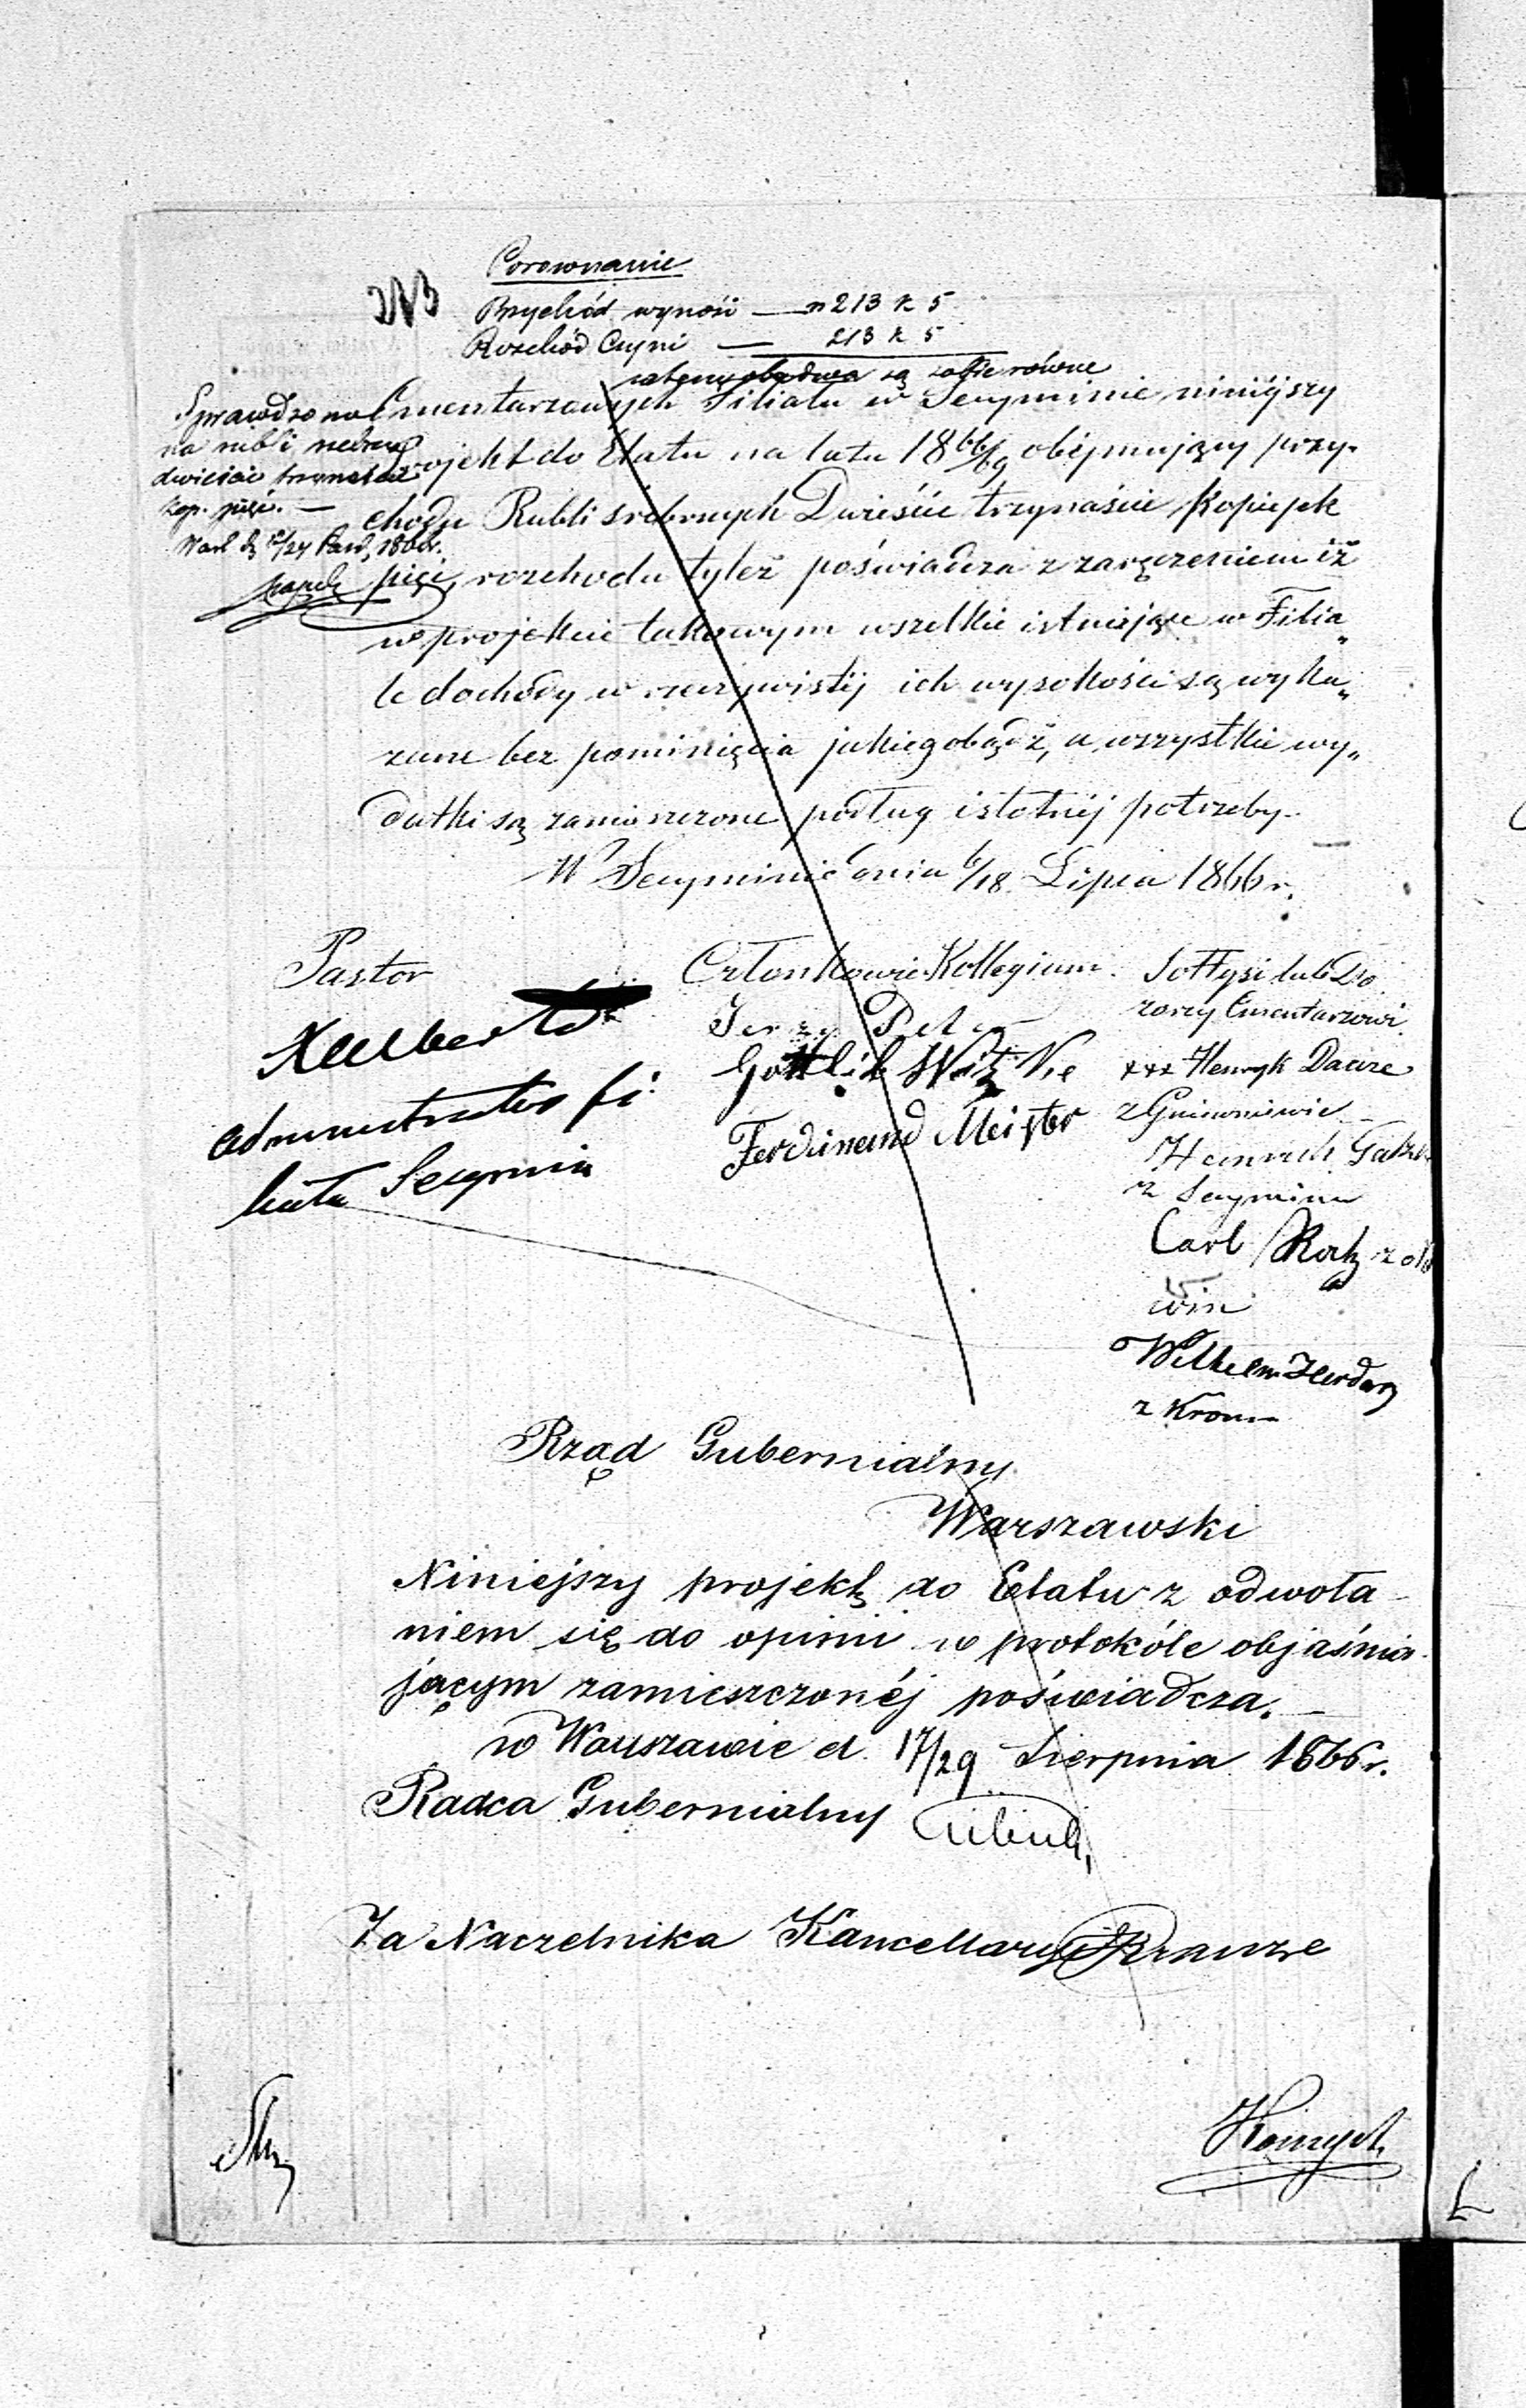 Porownanie
Przychód wynosi — rs 213 k 5
Rozchód Czyni — 213 k 5
zatem obadwa są sobie równe
Sprawdzono
na rubli srebrem
dwieście trzynaście
kop. pięć. —
Cmentarzowych Filiału w Secyminie niniéjszy
projekt do Etatu na lata 1866/69 obejmujący przy-
chodu Rubli śrebrnych Dwieście trzynaście Kopiejek
pięć, rozchodu tyleż poświadcza z zaręczeniem iż
w projekcie takowym wszelkie istniejące w Filia„
le dochody w rzeczywistéj ich wysokości są wyka„
zane bez pominięcia jakiegobądź, a wszystkie wy„
datki są zamieszczone podług istotnéj potrzeby.
W Secyminie dnia 6/18 Lipca 1866 r.
Pastor
administrator fi
liału Secymin
Członkowie Kollegium.
Jerzy
Gottlib
Ferdinand Meister
Sołtysi lub Do
zorcy Cmentarzowi.
+++ Henryk
z Gniewniewic
z Secymina
Carl
Wilhelm
z
Rząd Gubernialny
Warszawski
Niniejszy projekt do Etatu z odwoła-
niem się do opinii w protokóle objaśnia-
jącym zamieszczonéj poświadcza.
w Warszawie d. 17/29 Sierpnia 1866 r.
Radca Gubernialny
Za Naczelnika Kancellaryi Krauze